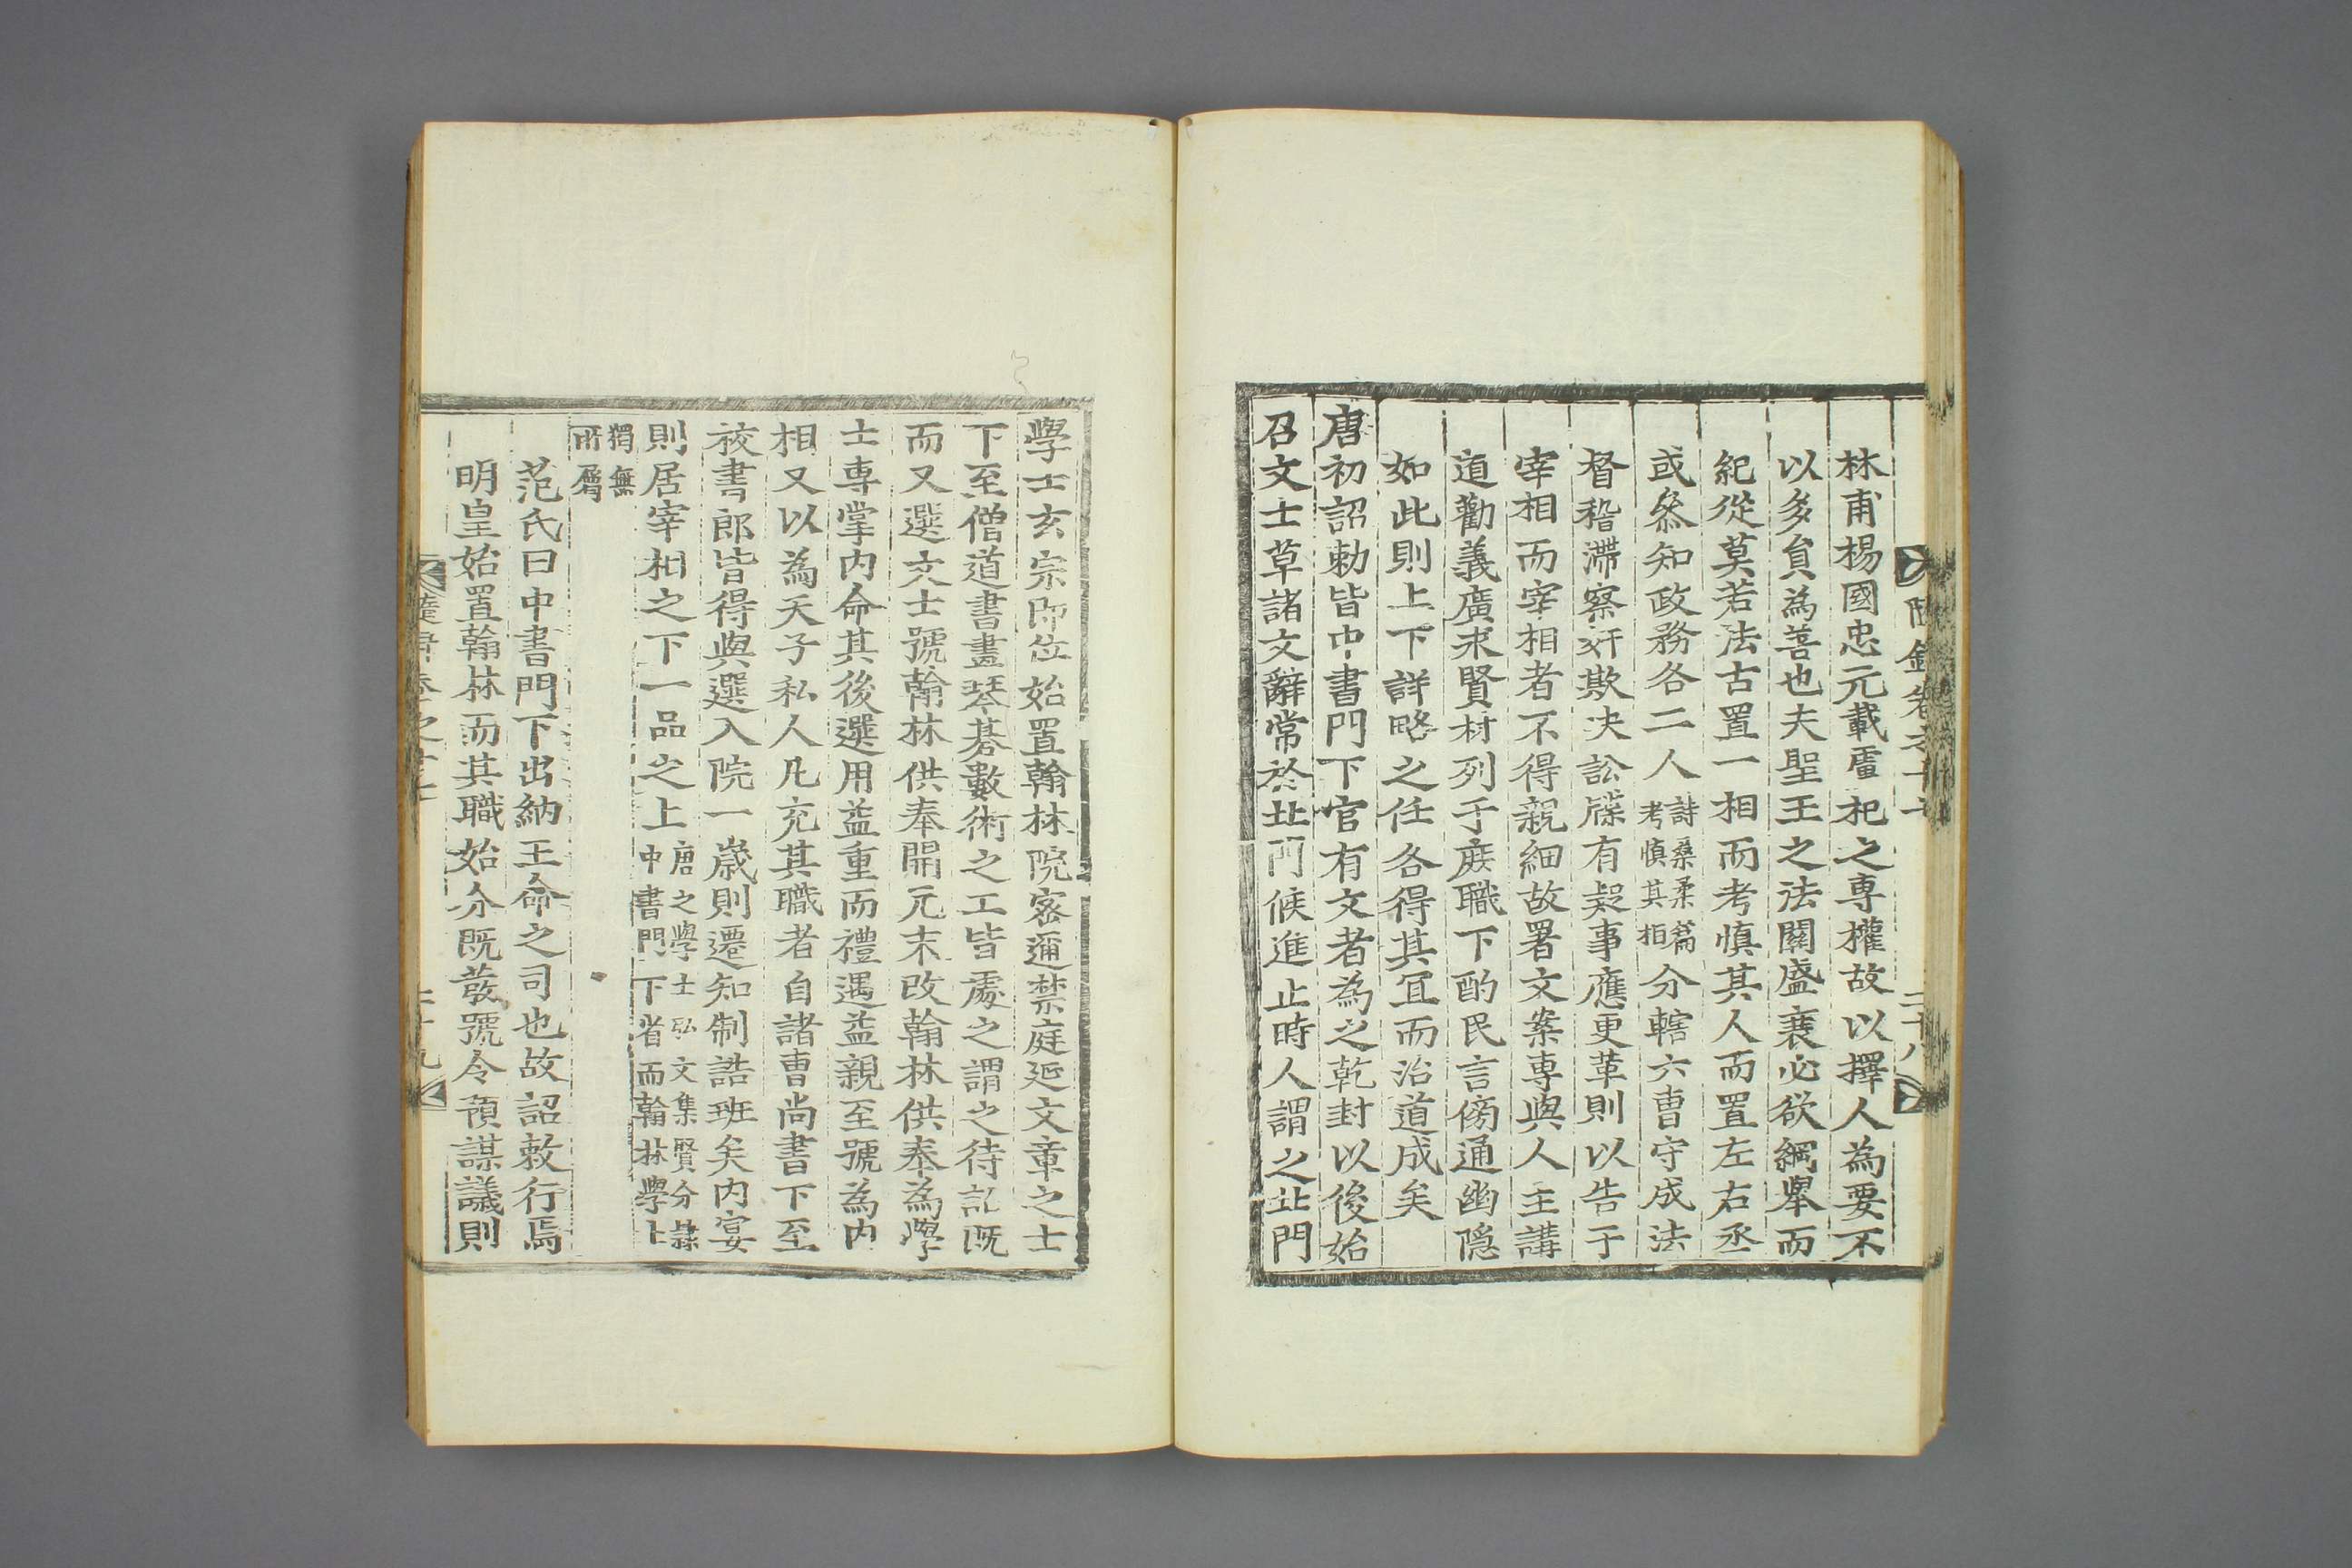 林甫楊國忠元載盧杞之專權故以擇人為要不
以多員為善也夫聖王之法關盛衰必欲綱舉而
紀從莫若法古置一相而考慎其人而置左右丞
或叅知政務各二人詩桑柔篇考慎其相分轄六曹守成法
督稽滯察姧欺决訟牒有疑事應更革則以告于
宰相而宰相者不得親細故署文案專與人主講
道勸義廣求賢材列于庻職下酌民言傍通幽隠
如此則上下詳略之任各得其冝而治道成矣
唐初詔勅皆中書門下官有文者為之乾封以後始
召文士草諸文辭常於北門候進止時人謂之北門
學士玄宗即位始置翰林院密邇禁庭延文章之士
下至僧道書畫琴碁數術之工皆處之謂之待詔既
而又選文士號翰林供奉開元末改翰林供奉為學
士專掌内命其後選用益重而禮遇益親至號為内
相又以為天子私人凡充其職者自諸曹尚書下至
校書郎皆得與選入院一歲則遷知制誥班矣内宴
則居宰相之下一品之上唐之學士弘文集賢分隷中書門下省而翰林學士
獨無所屬
范氏曰中書門下出納王命之司也故詔敕行焉
明皇始置翰林而其職始分既發號令預謀議則